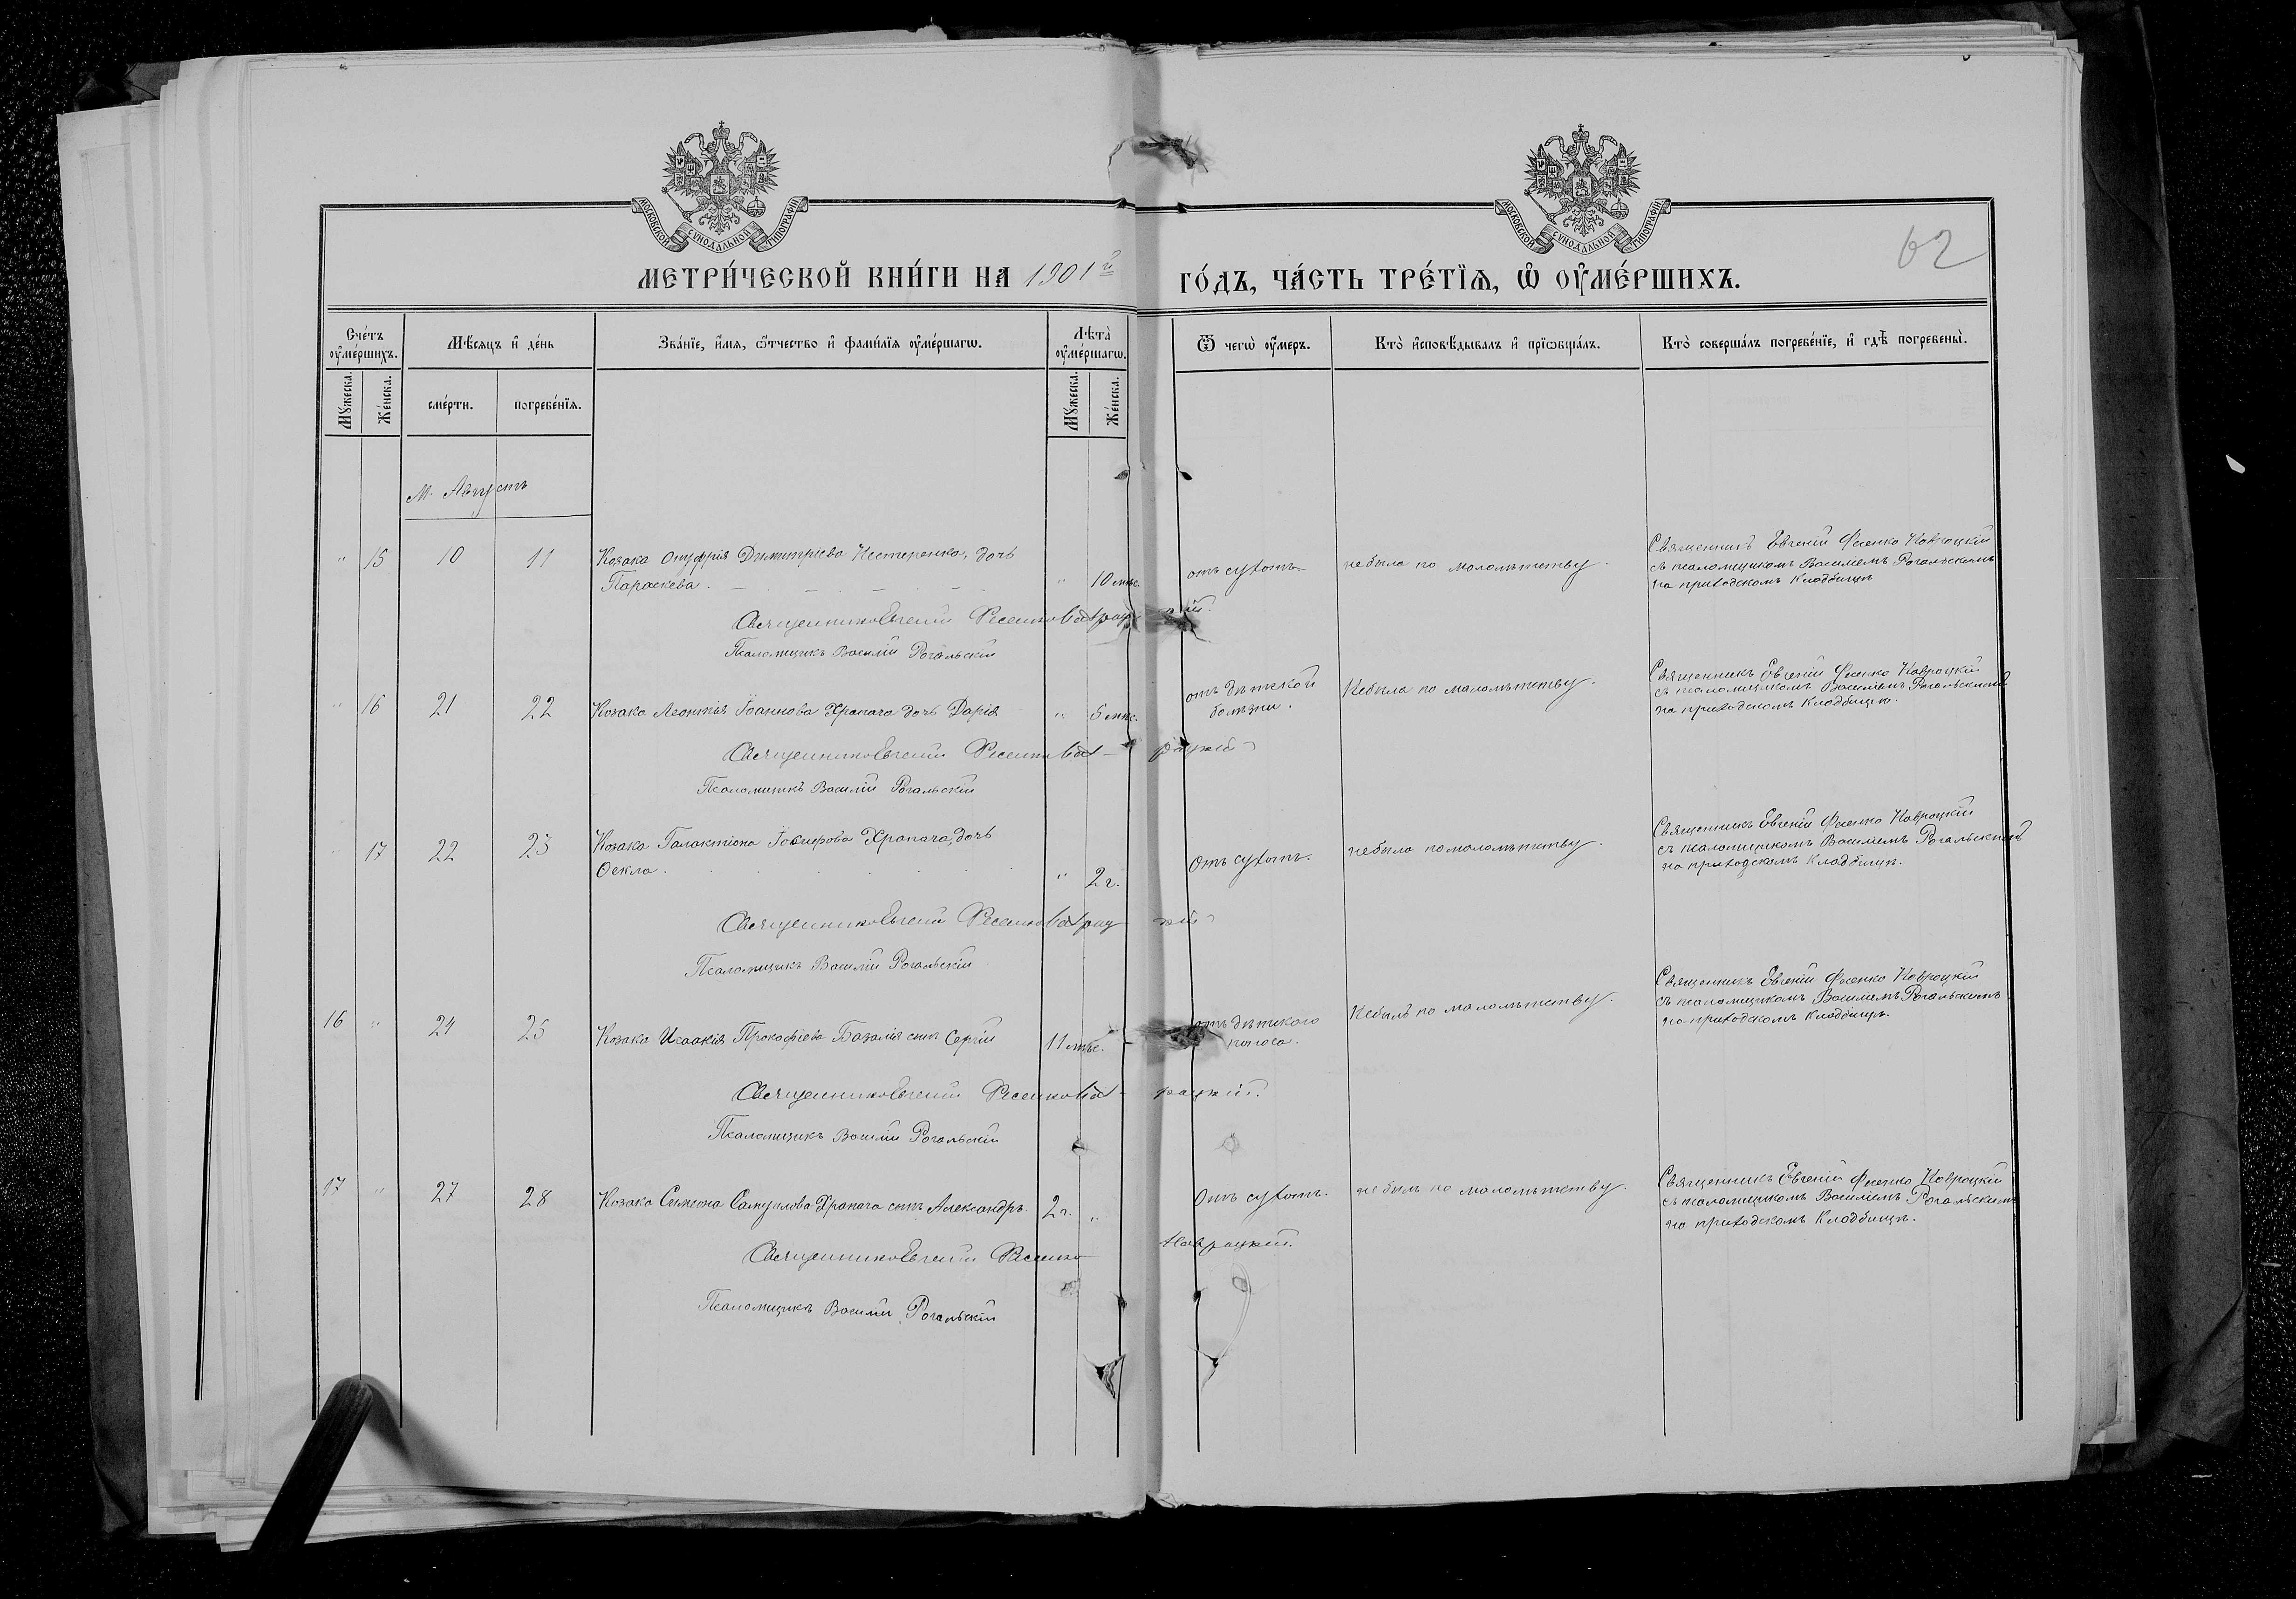 МОСКОВСКОЙ СѴНОДАЛЬНОЙ ТИПОГРАФІИ
МОСКОВСКОЙ СѴНОДАЛЬНОЙ ТИПОГРАФІИ
62
МЕТРИ́ЧЕСКОЙ КНИ́ГИ НА 1901й ГО́ДЪ, ЧА́СТЬ ТРЕ́ТЇѦ, Ѡ҆ ОУ҆МЕ́РШИХЪ.
Сче́тъ оу҆ме́ршихъ.
Мꙋ́жеска.
Же́нска.
Мѣ́сѧцъ и҆ де́нь
сме́рти.
погребе́нїѧ.
Зва́нїе, и҆́мѧ, ѻ҆́тчество и҆ фами́лїѧ оу҆ме́ршагѡ.
Лѣ́та оу҆ме́ршагѡ.
Мꙋ́жеска.
Же́нска.
Ѿ чегѡ̀ оу҆́меръ.
Кто̀ и҆сповѣ́дывалъ и҆ прїѡбща́лъ.
Кто̀ соверша́лъ погребе́нїе, и҆ гдѣ̀ погребены̀.
М. Августъ
" 15 10 11 Козака Онуфрія Димитріева Нестеренка, дочь
Параскева.
" 10 мѣс. отъ сухотъ не была по малолѣтству.
Священникъ Евгеній Фесенко Навроцкій
съ псаломщикомъ Василіемъ Рогальскимъ
на приходскомъ кладбищѣ
Священникъ Евгеній Фесенко Навроцкій.
Псаломщикъ Василій Рогальскій
" 16 21 22 Козака Леонтія Іоаннова Храпача дочь Дарія " 5 мѣс.
отъ дѣтской
болѣзни.
Не была по малолѣтству.
Священникъ Евгеній Фесенко Навроцкій
съ псаломщикомъ Василіемъ Рогальскимъ
на приходскомъ кладбищѣ.
Священникъ Евгеній Фесенко Навроцкій
Псаломщикъ Василій Рогальскій
" 17 22 23 Козака Галактіона Іосифова Храпача, дочь
Фекла.
" 2 г. Отъ сухотъ. не была по малолѣтству.
Священникъ Евгеній Фесенко Навроцкій
съ псаломщикомъ Василіемъ Рогальскимъ
на приходскомъ кладбищѣ.
Священникъ Евгеній Фесенко Навроцкій
Псаломщикъ Василій Рогальскій
16 " 24 25 Козака Исаакія Прокофіева Базалія сынъ Сергій 11 мѣс.
отъ дѣтского
поноса.
Не былъ по малолѣтству.
Священникъ Евгеній Фесенко Навроцкій
съ псаломщикомъ Василіемъ Рогальскимъ
на приходскомъ кладбищѣ.
Священникъ Евгеній Фесенко Навроцкій.
Псаломщикъ Василій Рогальскій
17 " 27 28 Козака Симеона Самуилова Храпача сынъ Александръ 2 г. "
Отъ сухотъ. не былъ по малолѣтству.
Священникъ Евгеній Фесенко Навроцкій
съ псаломщикомъ Василіемъ Рогальскимъ
на приходскомъ кладбищѣ.
Священникъ Евгеній Фесенко Навроцкій.
Псаломщикъ Василій Рогальскій